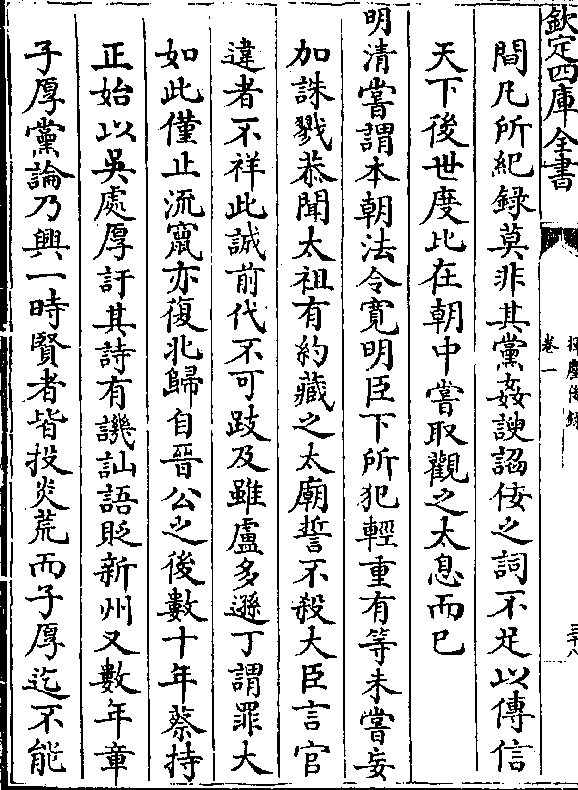 欽定四庫全書
卷一
間凡所紀録莫非其黨姦諛謟佞之詞不足以傳信
天下後世度比在朝中嘗取觀之太息而已
明清嘗謂本朝法令寛明臣下所犯輕重有等未嘗妄
加誅戮恭聞太祖有約藏之太廟誓不殺大臣言官
違者不祥此誠前代不可跂及雖盧多遜丁謂罪大
如此僅止流竄亦復北歸自晉公之後數十年蔡持
正始以吳處厚訐其詩有譏訕語貶新州又數年章
子厚黨論乃興一時賢者皆投炎荒而子厚迄不能